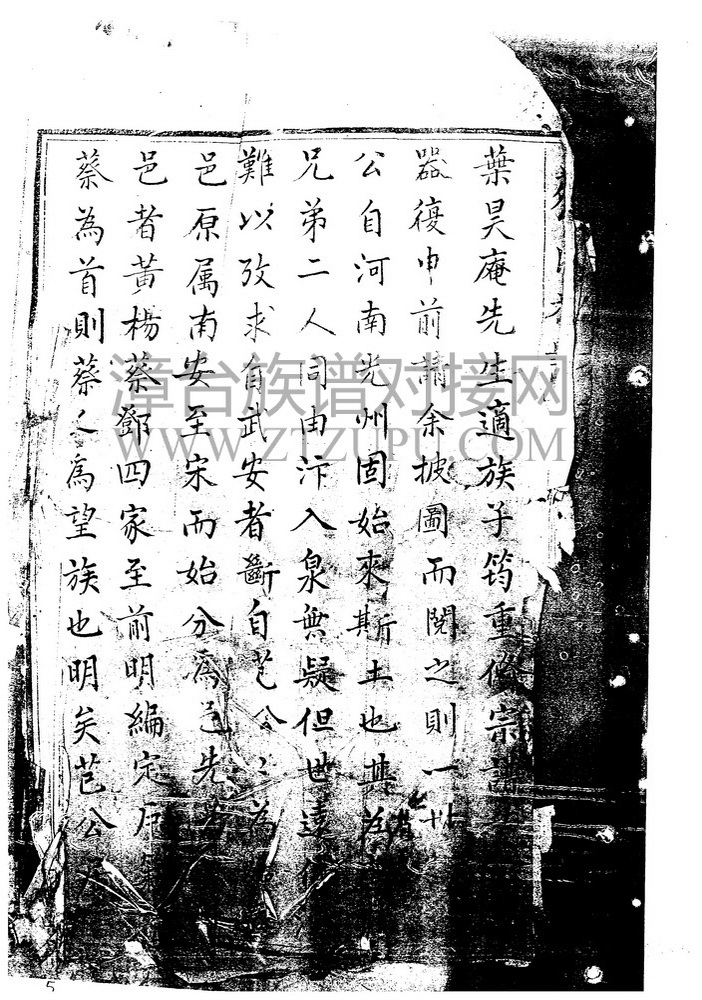 葉昊庵先生適族子筠重修宗譜
器復申前請余披圖而閱之則一世
公自河南光州固始來斯土也其
兄弟二人同由汴入泉無疑但世遠
難以攷求自武安者斷自芑公公為
邑原属南安至宋而始分為邑先
邑者黃楊蔡鄧四家至前明編定
蔡為首則蔡之為望族也明矣芑公
漳台族谱对接网
WWW.ZTZUPU.COM
5